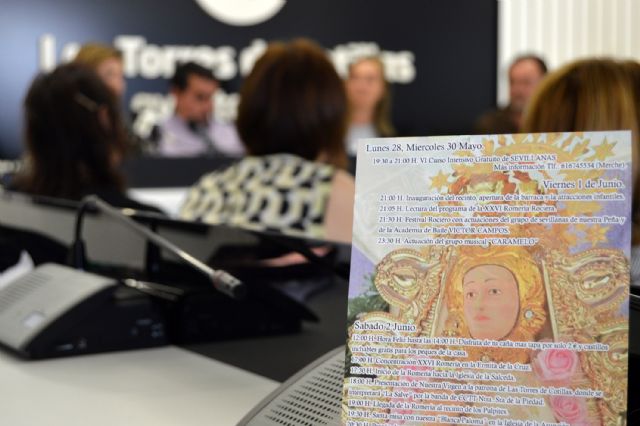 Las Torres de Cotillas
Lunes 28, Miercoles 30 Mayo
19:30 a 21:00 H. VI Curso Intensivo Gratuito de SEVILLANAS
Más información Tlf. 616745534 (Merche)
Viernes 1 de Junio
21:00 H. Inauguración del recinto, apertura de la barraca y la atracciones infantiles.
21:05 H. Lectura del programa de la XXVI Romería Rociera.
21:30 H. Festival Rociero con actuaciones del grupo de sevillanas de nuestra Peña y
de la Academia de Baile VICTOR CAMPOS.
23:30 H. Actuación del grupo musical "CARAMELO"
Sabado 2 Junio
12:00 H. Hora Feliz hasta las 14:00 H. Disfruta de tu caña mas tapa por solo 2 € y castillos
inchables gratis para los peques de la casa.
17:00 H. Concentración XXVI Romería en la Ermita de la Cruz.
17:30 H. Inicio de la Romería hacia la Iglesia de la Salceda.
18:00 H. Presentación de Nuestra Virgen a la patrona de Las Torres de Cotillas, donde se
interpretará "La Salve" por la banda de CCTT Ntra. Sta de la Piedad.
19:00 H. Llegada de la Romería al recinto de los Pulpites.
19:30 H. Santa misa con nuestra "Blanca Paloma" en la Iglesia de la